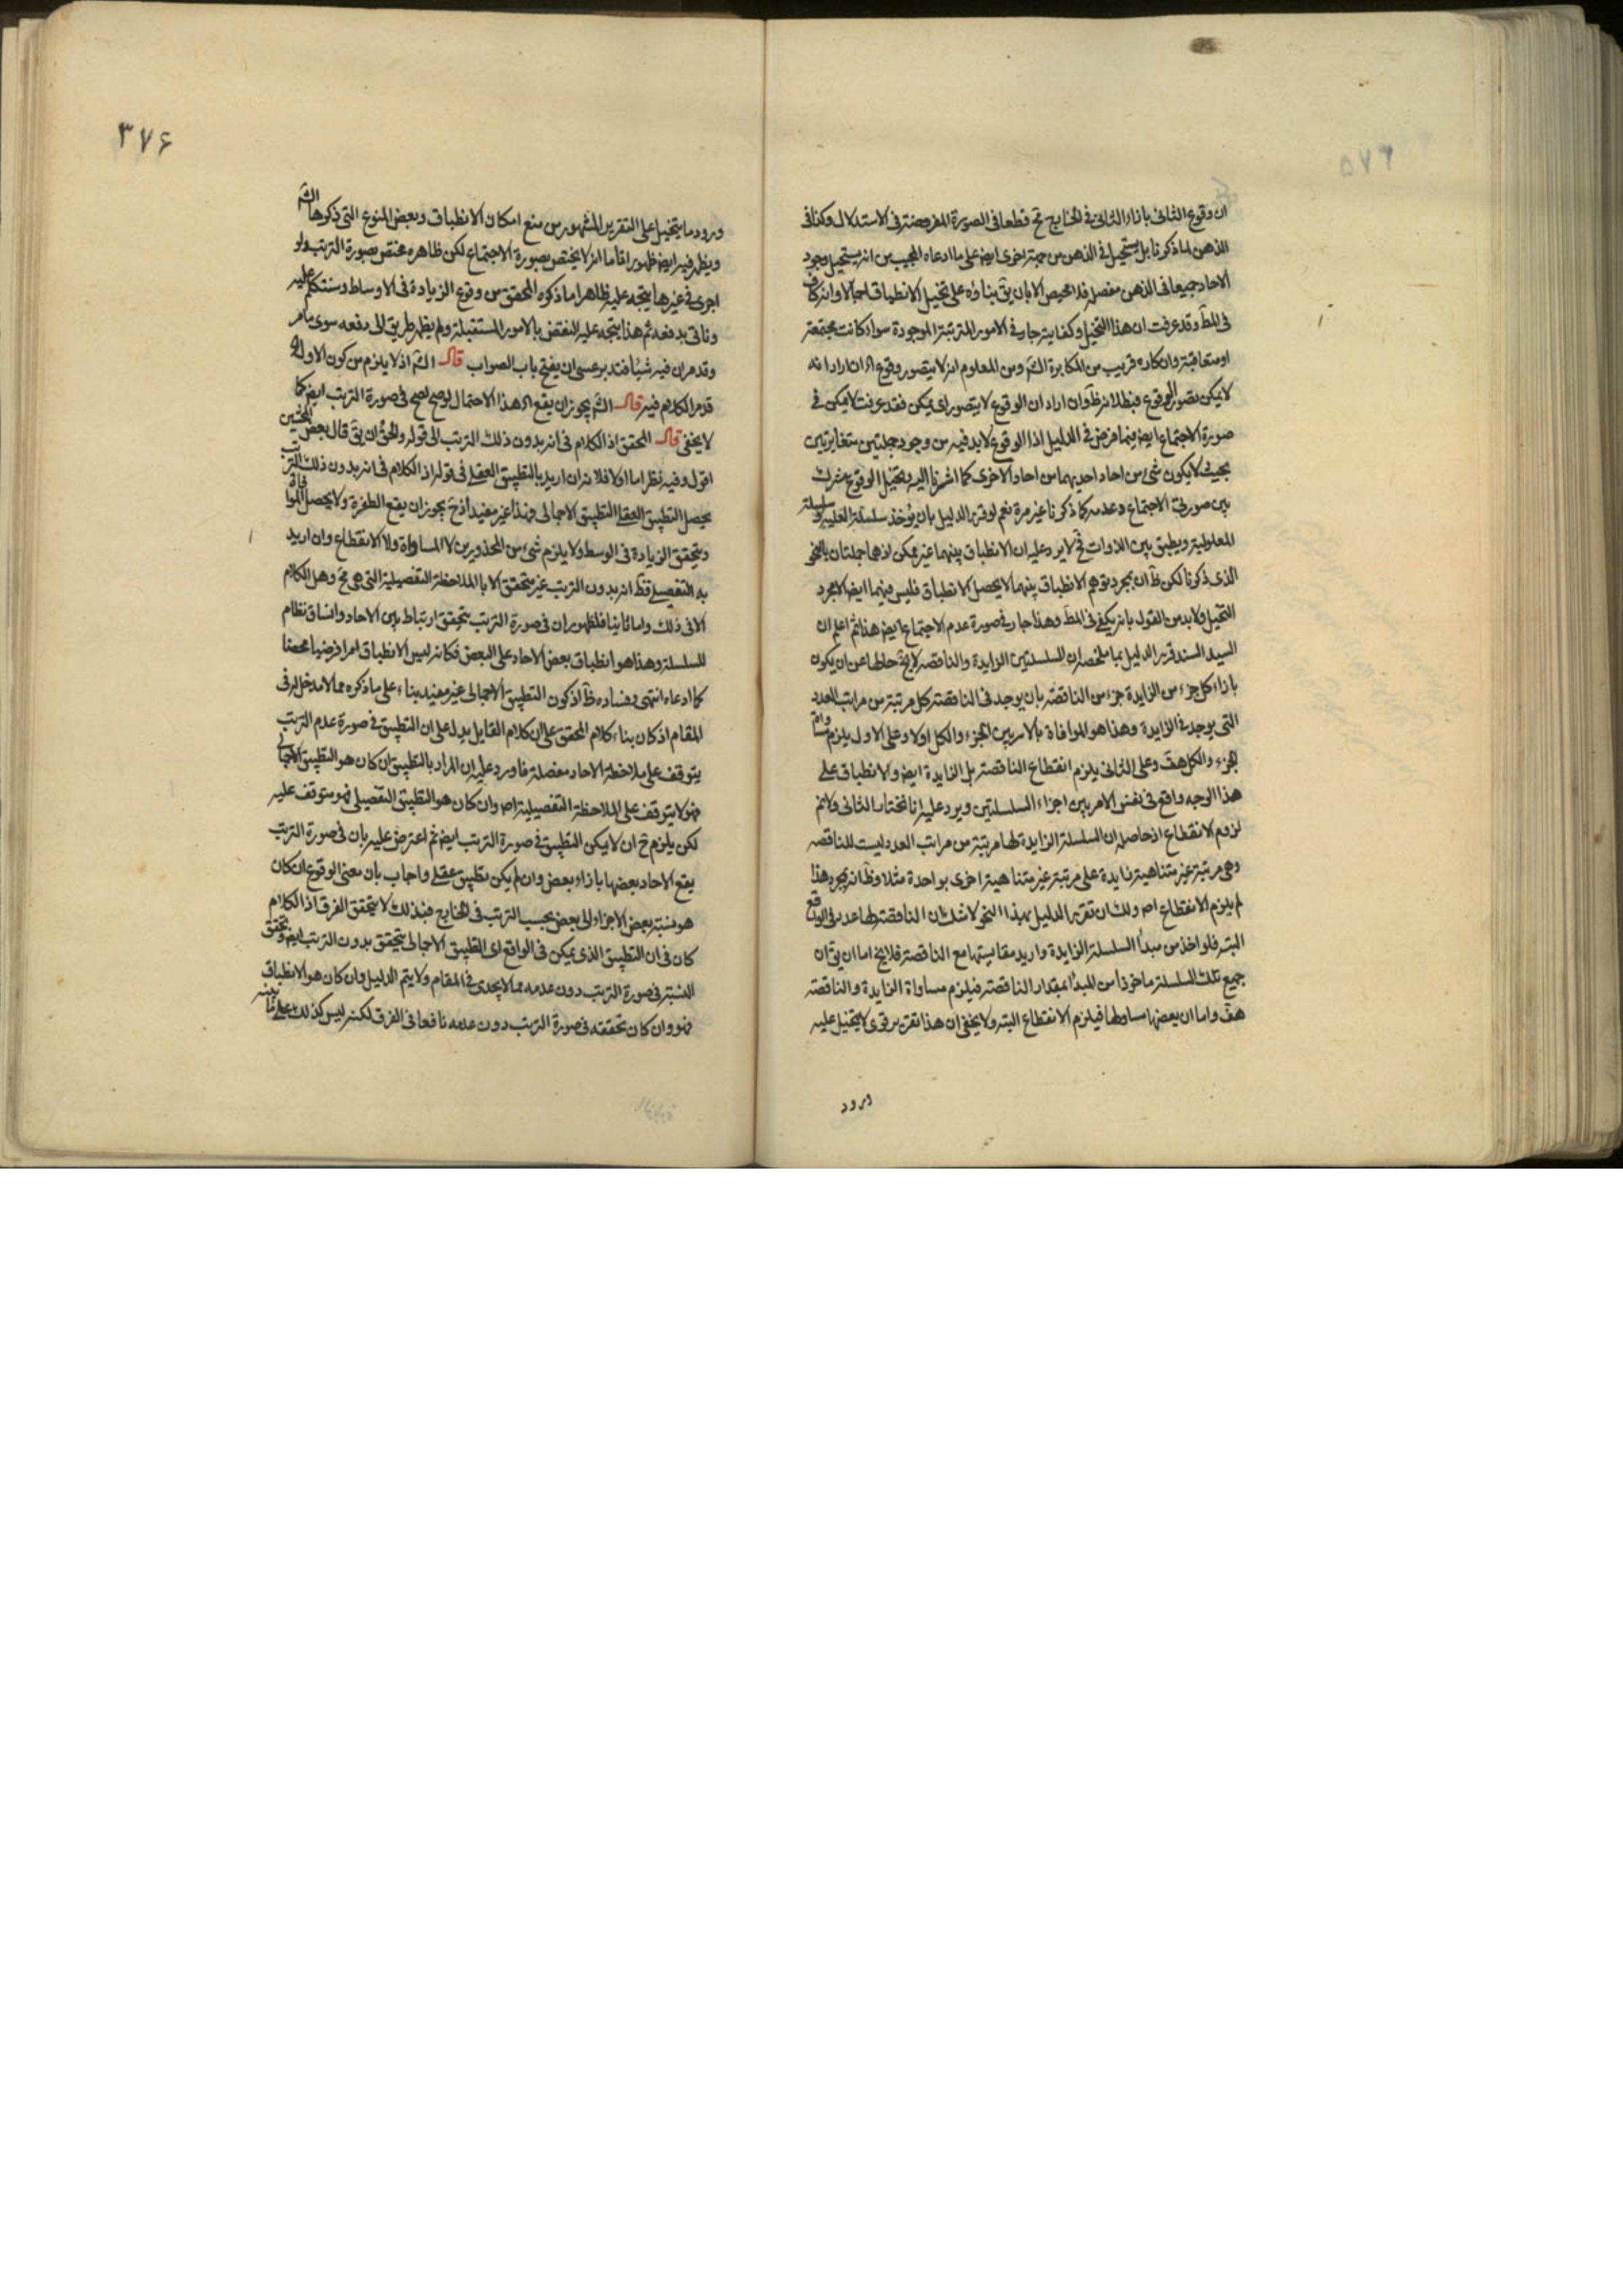 ان وقوع الثانی بازاء الثانی فی الخارج مح قطعا فی الصورة المفروضة فی الاستدلال وکذا فی
الذهن لما ذکرنا بل یستحیل فی الذهن من جهة اخری ایض علی ما ادعاه المجیب من انه یستحیل وجود
الاحاد جمیعا فی الذهن مفصلة فلا محیص الا بان یق بناؤه علی تخیل الانطباق اجمالا وانه کاف
فی المط وقد عرفت ان هذا التخیل وکفایته جار فی الامور المترتبة الموجودة سواء کانت مجتمعة
او متعاقبة وانکاره قریب من المکابرة الثم ومن المعلوم انه لا یتصور وقوع اه ان اراد انه
لا یمکن تصور الوقوع فبطلانه ظ وان اراد ان الوقوع لا یتصور ای یمکن فقد عرفت لا یمکن فی
صورة الاجتماع ایض فیما فرض فی الدلیل اذ الوقوع لا بد فیه من وجود جملتین متغایرتین
بحیث لا یکون شیء من احاد احدیهما من احاد الاخری کما اشرنا الیه وتخیل الوقوع مشترک
بین صورتی الاجتماع وعدمه کما ذکرنا غیر مرة نعم لو قرر الدلیل بان یؤخذ سلسلة العلیة وسلسلة
المعلولیة ویطبق بین الذوات فح لا یرد علیه ان الانطباق بینهما غیر ممکن اذ هما جملتان بالنحو
الذی ذکرنا لکن ظ ان بمجرد توهم الانطباق بینهما لا یحصل الانطباق فلیس فیهما ایض الا مجرد
التخیل ولا بد من القول بانه یکفی فی المط وهذا جار فی صورة عدم الاجتماع ایض هذا ثم اعلم ان
السید السند قرر الدلیل بما ملخصه ان السلسلتین الزایدة والناقصة لا یخ حالها عن ان یکون
بازاء کل جزء من الزایدة جزء من الناقصة بان یوجد فی الناقصة کل مرتبة من مراتب العدد
التی یوجد فی الزایدة وهذا هو الموافاة بالامر بین الجزء والکل اولا وعلی الاول یلزم مساواة
الجزء والکل هف وعلی الثانی یلزم انقطاع الناقصة بل الزایدة ایض والانطباق علی
هذا الوجه واقع فی نفس الامر بین اجزاء السلسلتین ویرد علیه انا نختار الثانی ولا نم
لزوم الانقطاع اذ حاصله ان السلسلة الزایدة لها مرتبة من مراتب العدد لیست للناقصة
وهی مرتبة غیر متناهیة زایدة علی مرتبة غیر متناهیة اخری بواحدة مثلا وظ انه بمجرد هذا
لم یلزم الانقطاع اص ولک ان تقرر الدلیل بهذا النحو لا شک ان الناقصة لها عدد فی الواقع
البته فلو اخذ من مبدأ السلسلة الزایدة وارید مقایستها مع الناقصة فلا یخ اما ان یق ان
جمیع تلک السلسلة ماخوذا من المبدأ بمقدار الناقصة فیلزم مساواة الزایدة والناقصة
هف واما ان بعضها مساو لها فیلزم الانقطاع البته ولا یخفی ان هذا تقریر قوی لا یتخیل علیه
ورود
۳۷۶
ورود ما یتخیل علی التقریر المشهور من منع امکان الانطباق وبعض المنوع التی ذکرها الثم
ویظهر فیه ایض ظهورا تاما انه لا یختص بصورة الاجتماع لکن ظاهره مختص بصورة الترتب ولو
اجری فی غیرها یتجه علیه ظاهرا ما ذکره المحقق من وقوع الزیادة فی الاوساط وسنتکلم علیه
وناتی بدفعه ثم هذا یتجه علیه النقض بالامور المستقبلة ولم یظهر طریق الی دفعه سوی ما مر
وقد مر ان فیه شیئا فتدبر عسی ان یفتح باب الصواب قال الثم اذ لا یلزم من کون الاولی اه
قد مر الکلام فیه قال الثم یجوز ان یقع اه هذا الاحتمال لو صح لصح فی صورة الترتب ایض کما
لا یخفی قال المحقق اذ الکلام فی انه بدون ذلک الترتب الی قوله والحق ان یق قال بعض المحشین
اقول وفیه نظر اما اولا فلانه ان ارید بالتطبیق العقلی فی قوله اذ الکلام فی انه بدون ذلک الترتب
یحصل التطبیق العقلی التطبیق الاجمالی فهذا غیر مفید اذ ح یجوز ان یقع الطفرة ولا یحصل الموافاة
ویتحقق الزیادة فی الوسط ولا یلزم شیء من المحذورین لا المساواة ولا الانقطاع وان ارید
به التفصیلی فظ انه بدون الترتب غیر متحقق الا بالملاحظة التفصیلیة التی هی مح وهل الکلام
الا فی ذلک واما ثانیا فلظهور ان فی صورة الترتب یتحقق ارتباط بین الاحاد واتساق نظام
للسلسلة وهذا هو انطباق بعض الاحاد علی البعض فکانه لیس الانطباق امرا فرضیا محضا
کما ادعاه انتهی وفساده ظ اذ کون التطبیق الاجمالی غیر مفید بناء علی ما ذکره مما لا مدخل له فی
المقام اذ کان بناء کلام المحقق علی ان کلام القایل یدل علی ان التطبیق فی صورة عدم الترتب
یتوقف علی ملاحظة الاحاد مفصلة فاورد علیه ان المراد بالتطبیق ان کان هو التطبیق الاجمالی
فهو لا یتوقف علی الملاحظة التفصیلیة اص وان کان هو التطبیق التفصیلی فهو متوقف علیه
لکن یلزم ح ان لا یمکن التطبیق فی صورة الترتب ایض ثم اعترض علیه بان فی صورة الترتب
یقع الاحاد بعضها بازاء بعض وان لم یکن تطبیق عقلی واجاب بان معنی الوقوع ان کان
هو نسبة بعض الاجزاء الی بعض بحسب الترتب فی الخارج فبذلک لا یتحقق الفرق اذ الکلام
کان فی ان التطبیق الذی یمکن فی الواقع ای التطبیق الاجمالی یتحقق بدون الترتب ایض وتحقق
النسبة فی صورة الترتب دون عدمه مما لا یجدی فی المقام ولا یتم الدلیل وان کان هو الانطباق
فهو وان کان تحققه فی صورة الترتب دون عدمه نافعا فی الفرق لکنه لیس کذلک علی ما بینه